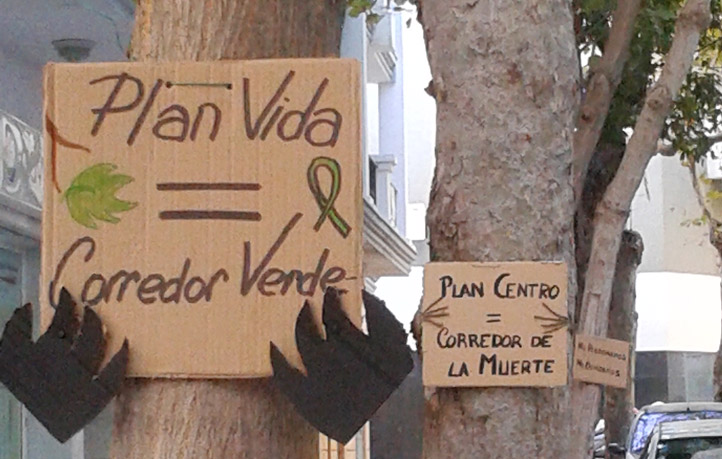 Plan Vida
=
Corredor Verde
PLAN CENTRO
=
CORREDOR DE
LA MUERTE